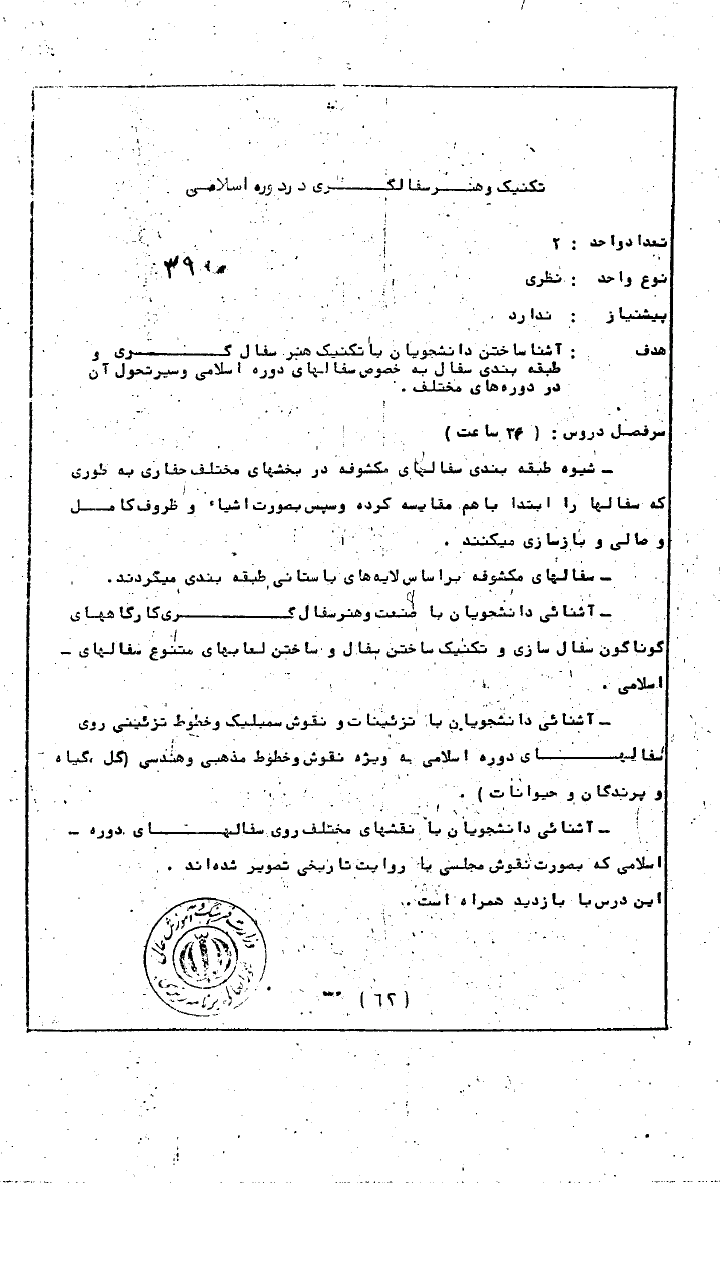 تکنیک وهنرسفالگری دردوره اسلامی
تعدادواحد : ۲
۳۹
نوع واحد : نظری
پیشنیاز : ندارد
هدف : آشناساختن دانشجویان باتکنیک هنر سفال گری و
طبقه بندی سفال به خصوص سفالهای دوره اسلامی وسیرتحول آن
در دوره‌های مختلف .
سرفصل دروس : ( ۳۴ ساعت )
ـ شیوه طبقه بندی سفالهای مکشوفه در بخشهای مختلف حفاری به طوری
که سفالها را ابتدا باهم مقایسه کرده وسپس بصورت اشیاء و ظروف کامل
وصالی و بازسازی میکنند .
ـ سفالهای مکشوفه براساس لایه‌های باستانی طبقه بندی میگردند.
ـ آشنائی دانشجویان با صنعت وهنرسفال گری کارگاههای
گوناگون سفال سازی و تکنیک ساختن سفال و ساختن لعابهای متنوع سفالهای ـ
اسلامی .
ـ آشنائی دانشجویان با تزئینات و نقوش سمبلیک وخطوط تزئینی روی
سفالهای دوره اسلامی به ویژه نقوش وخطوط مذهبی وهندسی (گل ،گیاه
و پرندگان و حیوانات ) .
ـ آشنائی دانشجویان با نقشهای مختلف روی سفالهای دوره ـ
اسلامی که بصورت نقوش مجلسی با روایت تاریخی تصویر شده‌اند .
این درس با بازدید همراه است .
وزارت فرهنگ و آموزش عالی
شورایعالی برنامه ریزی
(۶۲)